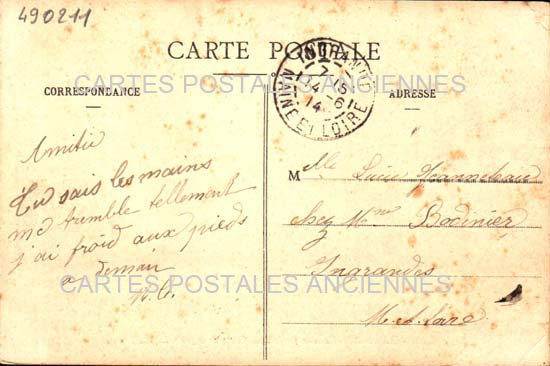 490211
CARTE POSTALE
INGRANDES
7-15
4-6
14
MAINE ET LOIRE
CARTES POSTALES ANCIENNES
CORRESPONDANCE
ADRESSE
Amitié
Tu sais les mains
me tremble tellement
j'ai froid aux pieds
a demain
Mlle Lucie
chez Mme Bodinier
Ingrandes
CARTES POSTALES ANCIENNES
M.-et-Loire